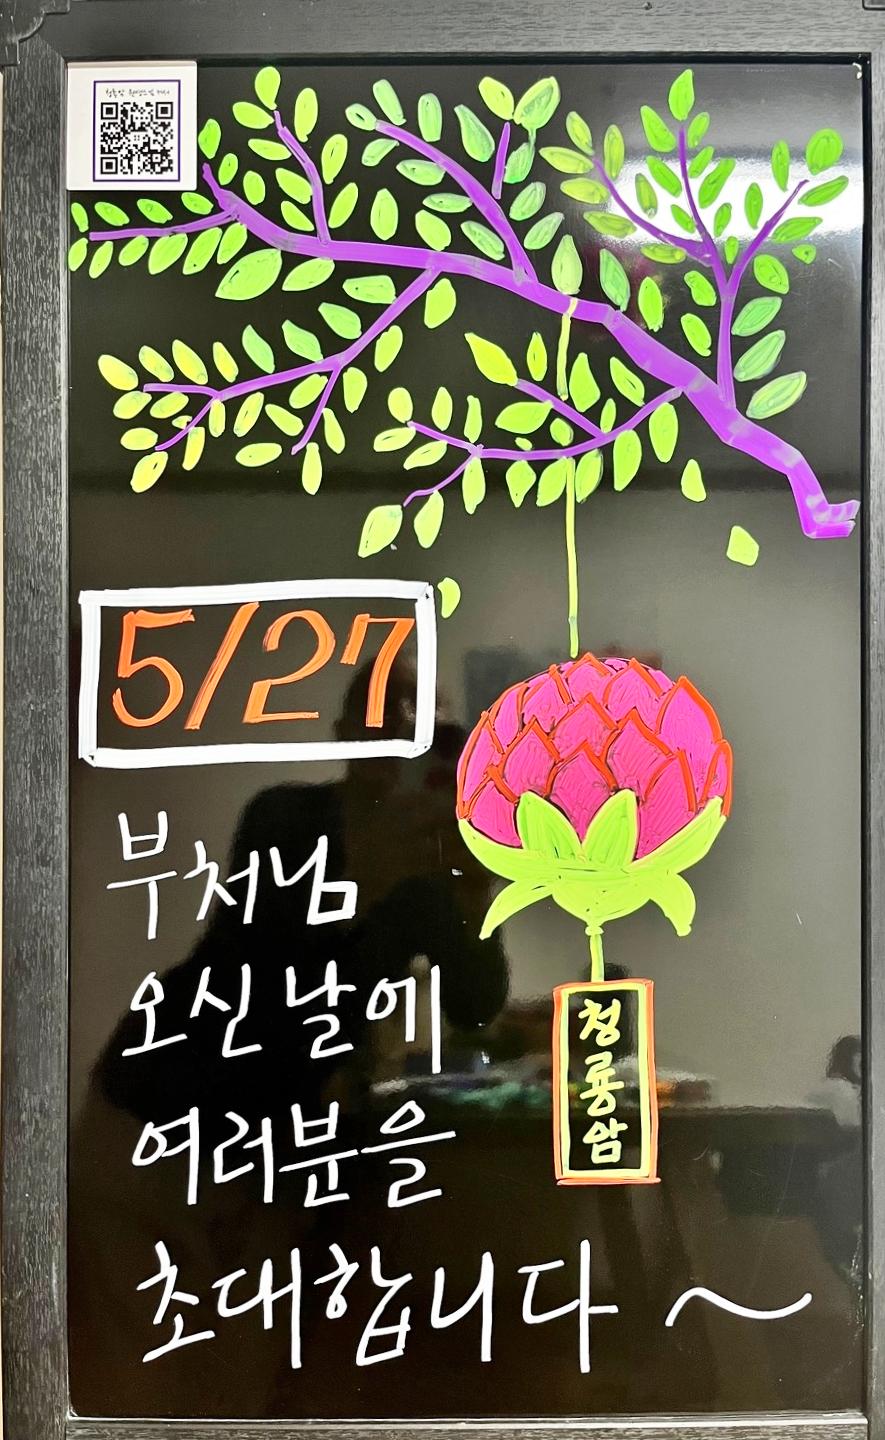 5/27
부처님
오신날에
여러분을
초대합니다 ~
청
룡
암